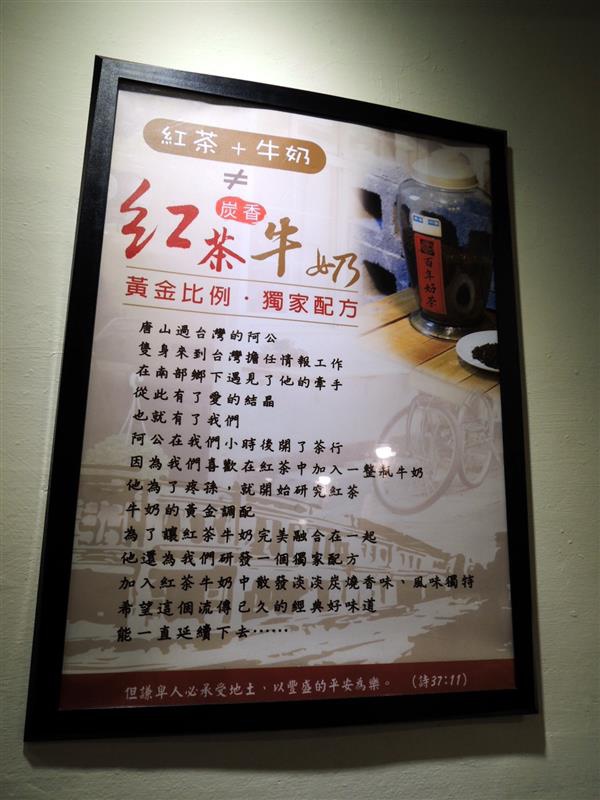 紅茶+牛奶
≠
炭香
紅茶牛奶
黃金比例・獨家配方
百年好茶
唐山過台灣的阿公
隻身來到台灣擔任情報工作
在南部鄉下遇見了他的牽手
從此有了愛的結晶
也就有了我們
阿公在我們小時後開了茶行
因為我們喜歡在紅茶中加入一整瓶牛奶
他為了疼孫，就開始研究紅茶
牛奶的黃金調配
為了讓紅茶牛奶完美融合在一起
他還為我們研發一個獨家配方
加入紅茶牛奶中散發淡淡炭燒香味、風味獨特
希望這個流傳已久的經典好味道
能一直延續下去……
但謙卑人必承受地土、以豐盛的平安為樂。　（詩37:11）